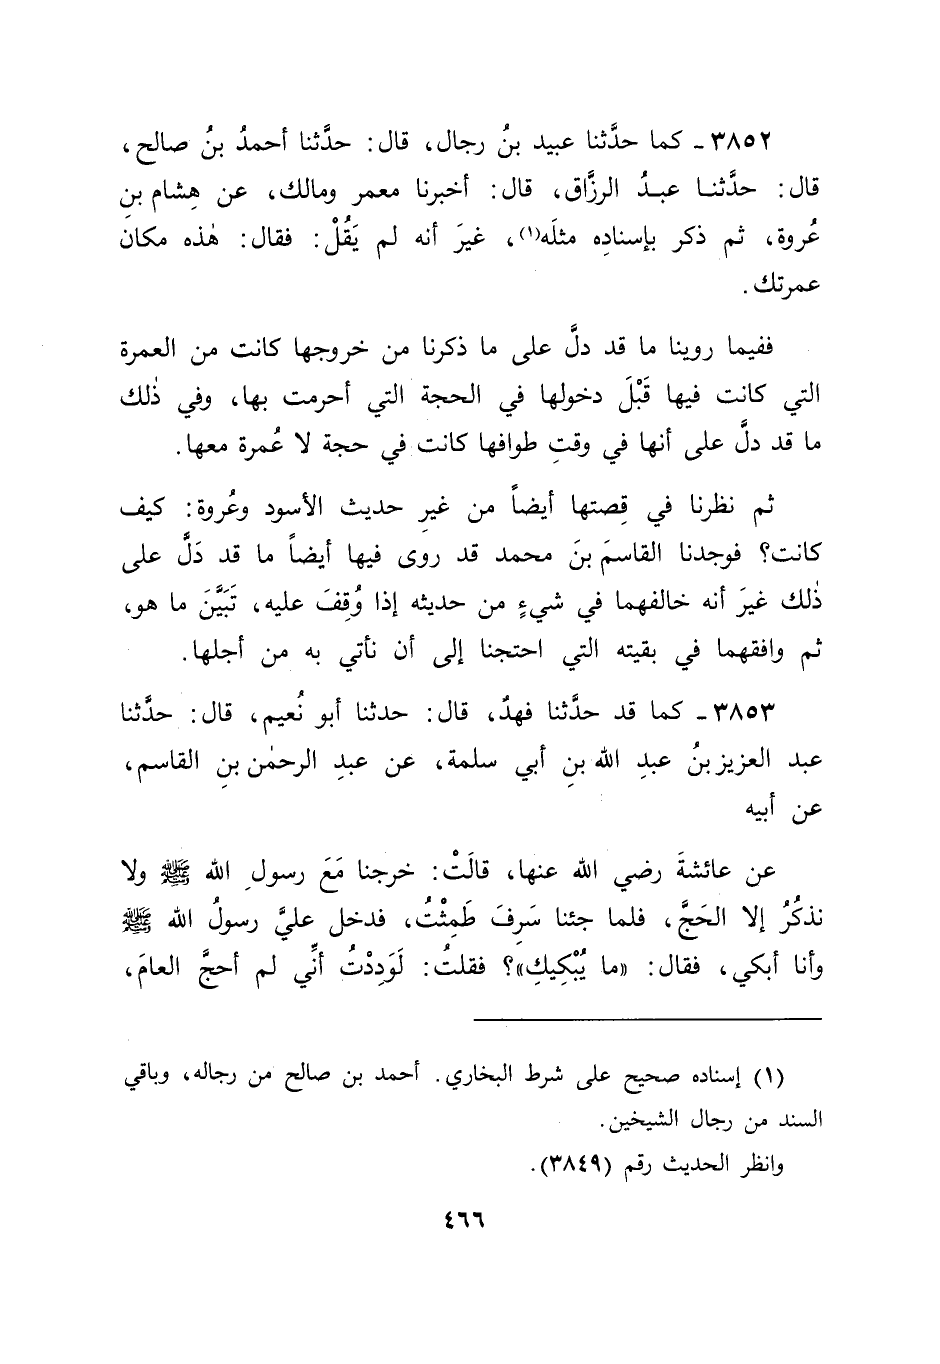 ٣٨٥٢ـ كما حدَّثنا عبيد بنُ رجال، قال: حدَّثنا أحمدُ بنُ صالح،
قال: حدَّثنا عبدُ الرزَّاق، قال: أخبرنا معمر ومالك، عن هِشام بنِ
عُروة، ثم ذكر بإسنادِه مثلَه(١)، غيرَ أنه لم يَقُلْ: فقال: هٰذه مكانَ
عمرتك.
ففيما روينا ما قد دلَّ على ما ذكرنا من خروجها كانت من العمرة
التي كانت فيها قَبْلَ دخولها في الحجة التي أحرمت بها، وفي ذٰلك
ما قد دلَّ على أنها في وقتِ طوافها كانت في حجة لا عُمرة معها.
ثم نظرنا في قِصتها أيضاً من غيرِ حديث الأسود وعُروة: كيف
كانت؟ فوجدنا القاسمَ بنَ محمد قد روى فيها أيضاً ما قد دَلَّ على
ذٰلك غيرَ أنه خالفهما في شيءٍ من حديثه إذا وُقِفَ عليه، تَبَيَّنَ ما هو،
ثم وافقهما في بقيته التي احتجنا إلى أن نأتي به من أجلها.
٣٨٥٣ـ كما قد حدَّثنا فهدٌ، قال: حدثنا أبو نُعيم، قال: حدَّثنا
عبد العزيز بنُ عبدِ الله بنِ أبي سلمة، عن عبدِ الرحمٰن بنِ القاسم،
عن أبيه
عن عائشةَ رضي الله عنها، قالَتْ: خرجنا مَعَ رسولِ الله ﷺ ولا
نذكُرُ إلا الحَجَّ، فلما جئنا سَرِفَ طَمِثْتُ، فدخل عليَّ رسولُ الله ﷺ
وأنا أبكي، فقال: «ما يُبْكِيكِ»؟ فقلتُ: لَوَدِدْتُ أنِّي لم أحجَّ العامَ،
(١) إسناده صحيح على شرط البخاري. أحمد بن صالح من رجاله، وباقي
السند من رجال الشيخين.
وانظر الحديث رقم (٣٨٤٩).
٤٦٦